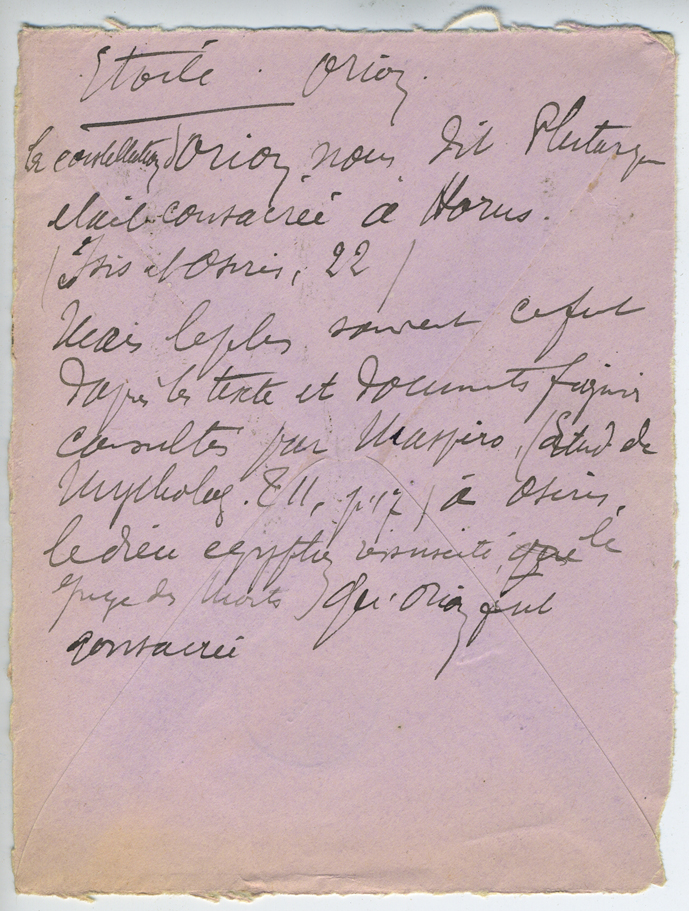 Etoile . Orion.
la constellation d'Orion, nous dit Plutarque
était consacrée à Horus.
(Isis et Osiris, 22)
Mais le plus souvent ce fut
d'après les texte et documents figurés
consultés par Maspero, (Etud de
Mytholog. T II, p. 17) à Osiris,
le dieu egyptien réssuscité, que le
juge des Morts) qu'Orion fut
consacrée